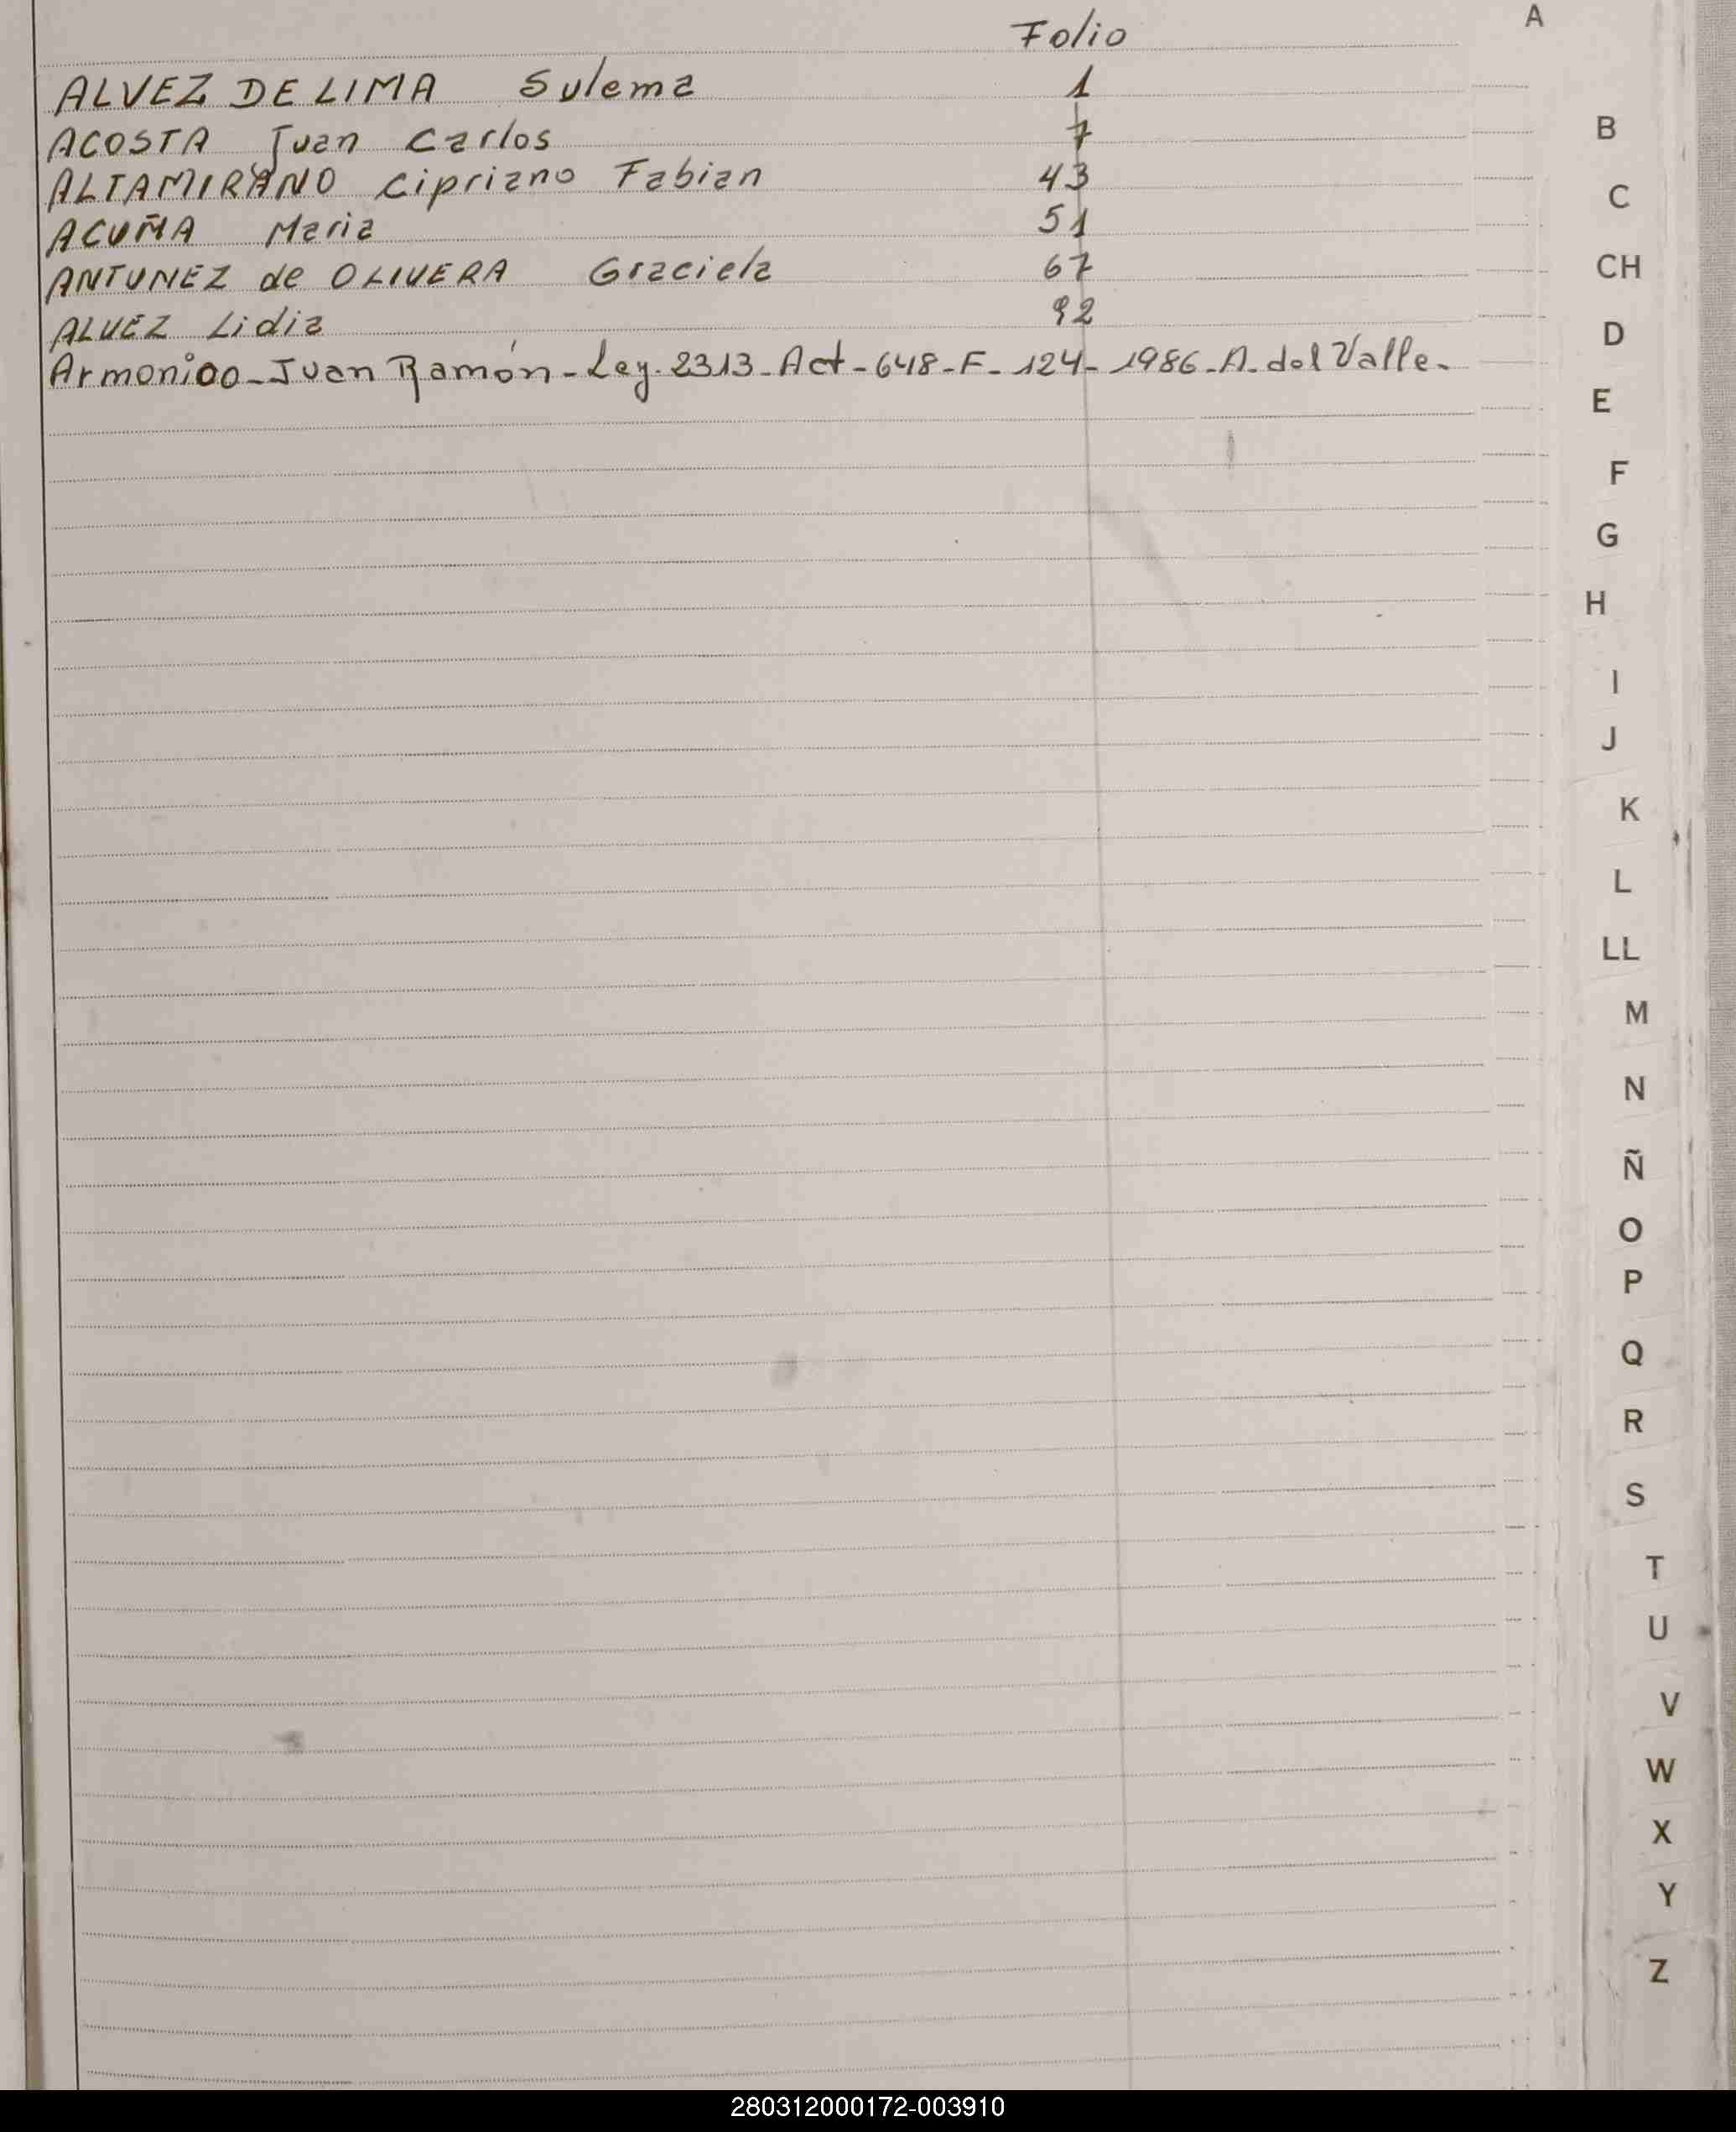 Folio
A
ALVEZ DE LIMA Sulema 1
ACOSTA Juan Carlos 7
ALTAMIRANO Cipriano Fabian 43
ACUÑA Maria 51
ANTUNEZ de OLIVERA Graciela 67
ALVEZ Lidia 92
Armonioo - Juan Ramón - Ley. 2313 - Act - 648 - F - 124 - 1986 - A. del Valle -
B
C
CH
D
E
F
G
H
I
J
K
L
LL
M
N
Ñ
O
P
Q
R
S
T
U
V
W
X
Y
Z
280312000172-003910